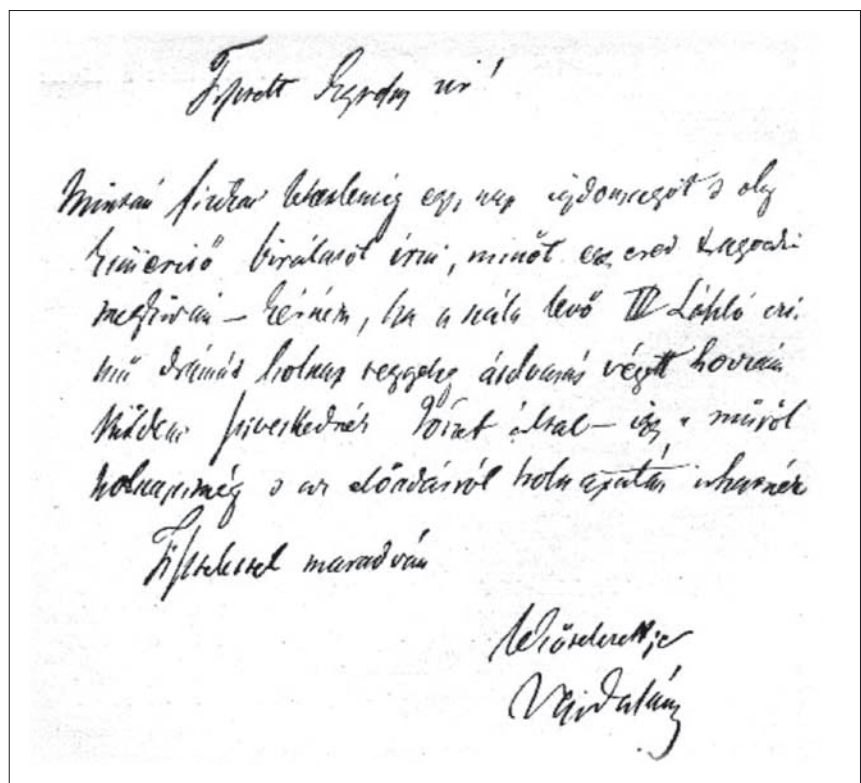 Tisztelt Egressy úr!
Miután fizikai lehetlenség egy nap újdonságot s oly
kimerítő birálatot írni, minőt ez eredeti
megkíván – kérném, ha a nála levő III László czí-
mű drámát holnap reggelig átolvasás végett hozzám
küldeni sziveskednék által – így a műről
holnap még s az előadásról holnapután
Tisztelettel maradván
lekötelezettje
Vajda János